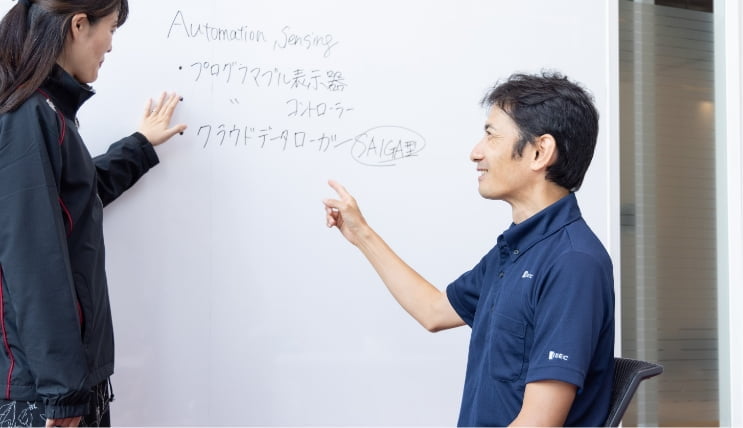 Automation, Sensing
・プログラマブル表示器
〃 コントローラー
・クラウドデータロガー SAIGA型
IDEC